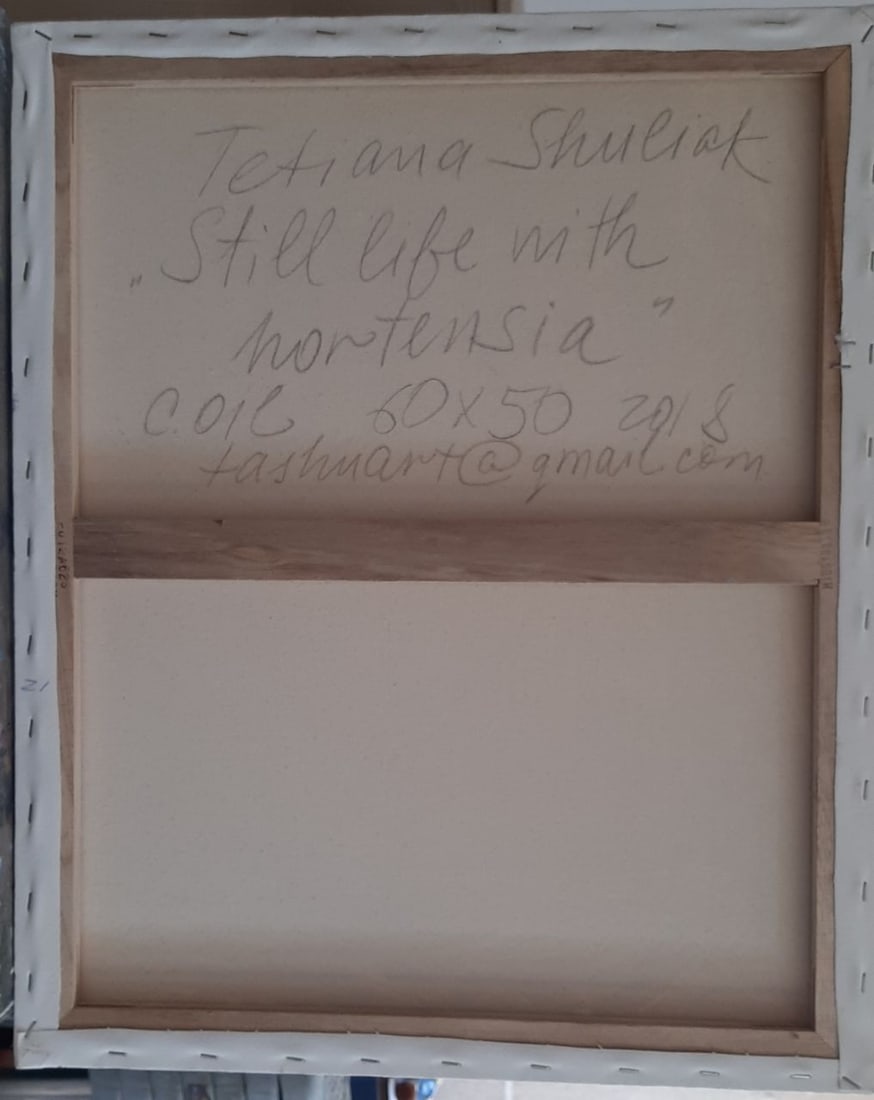 Tetiana Shuliak
„Still life with
hortensia”
c. oil 60x50 2018
tashuart@gmail.com
21